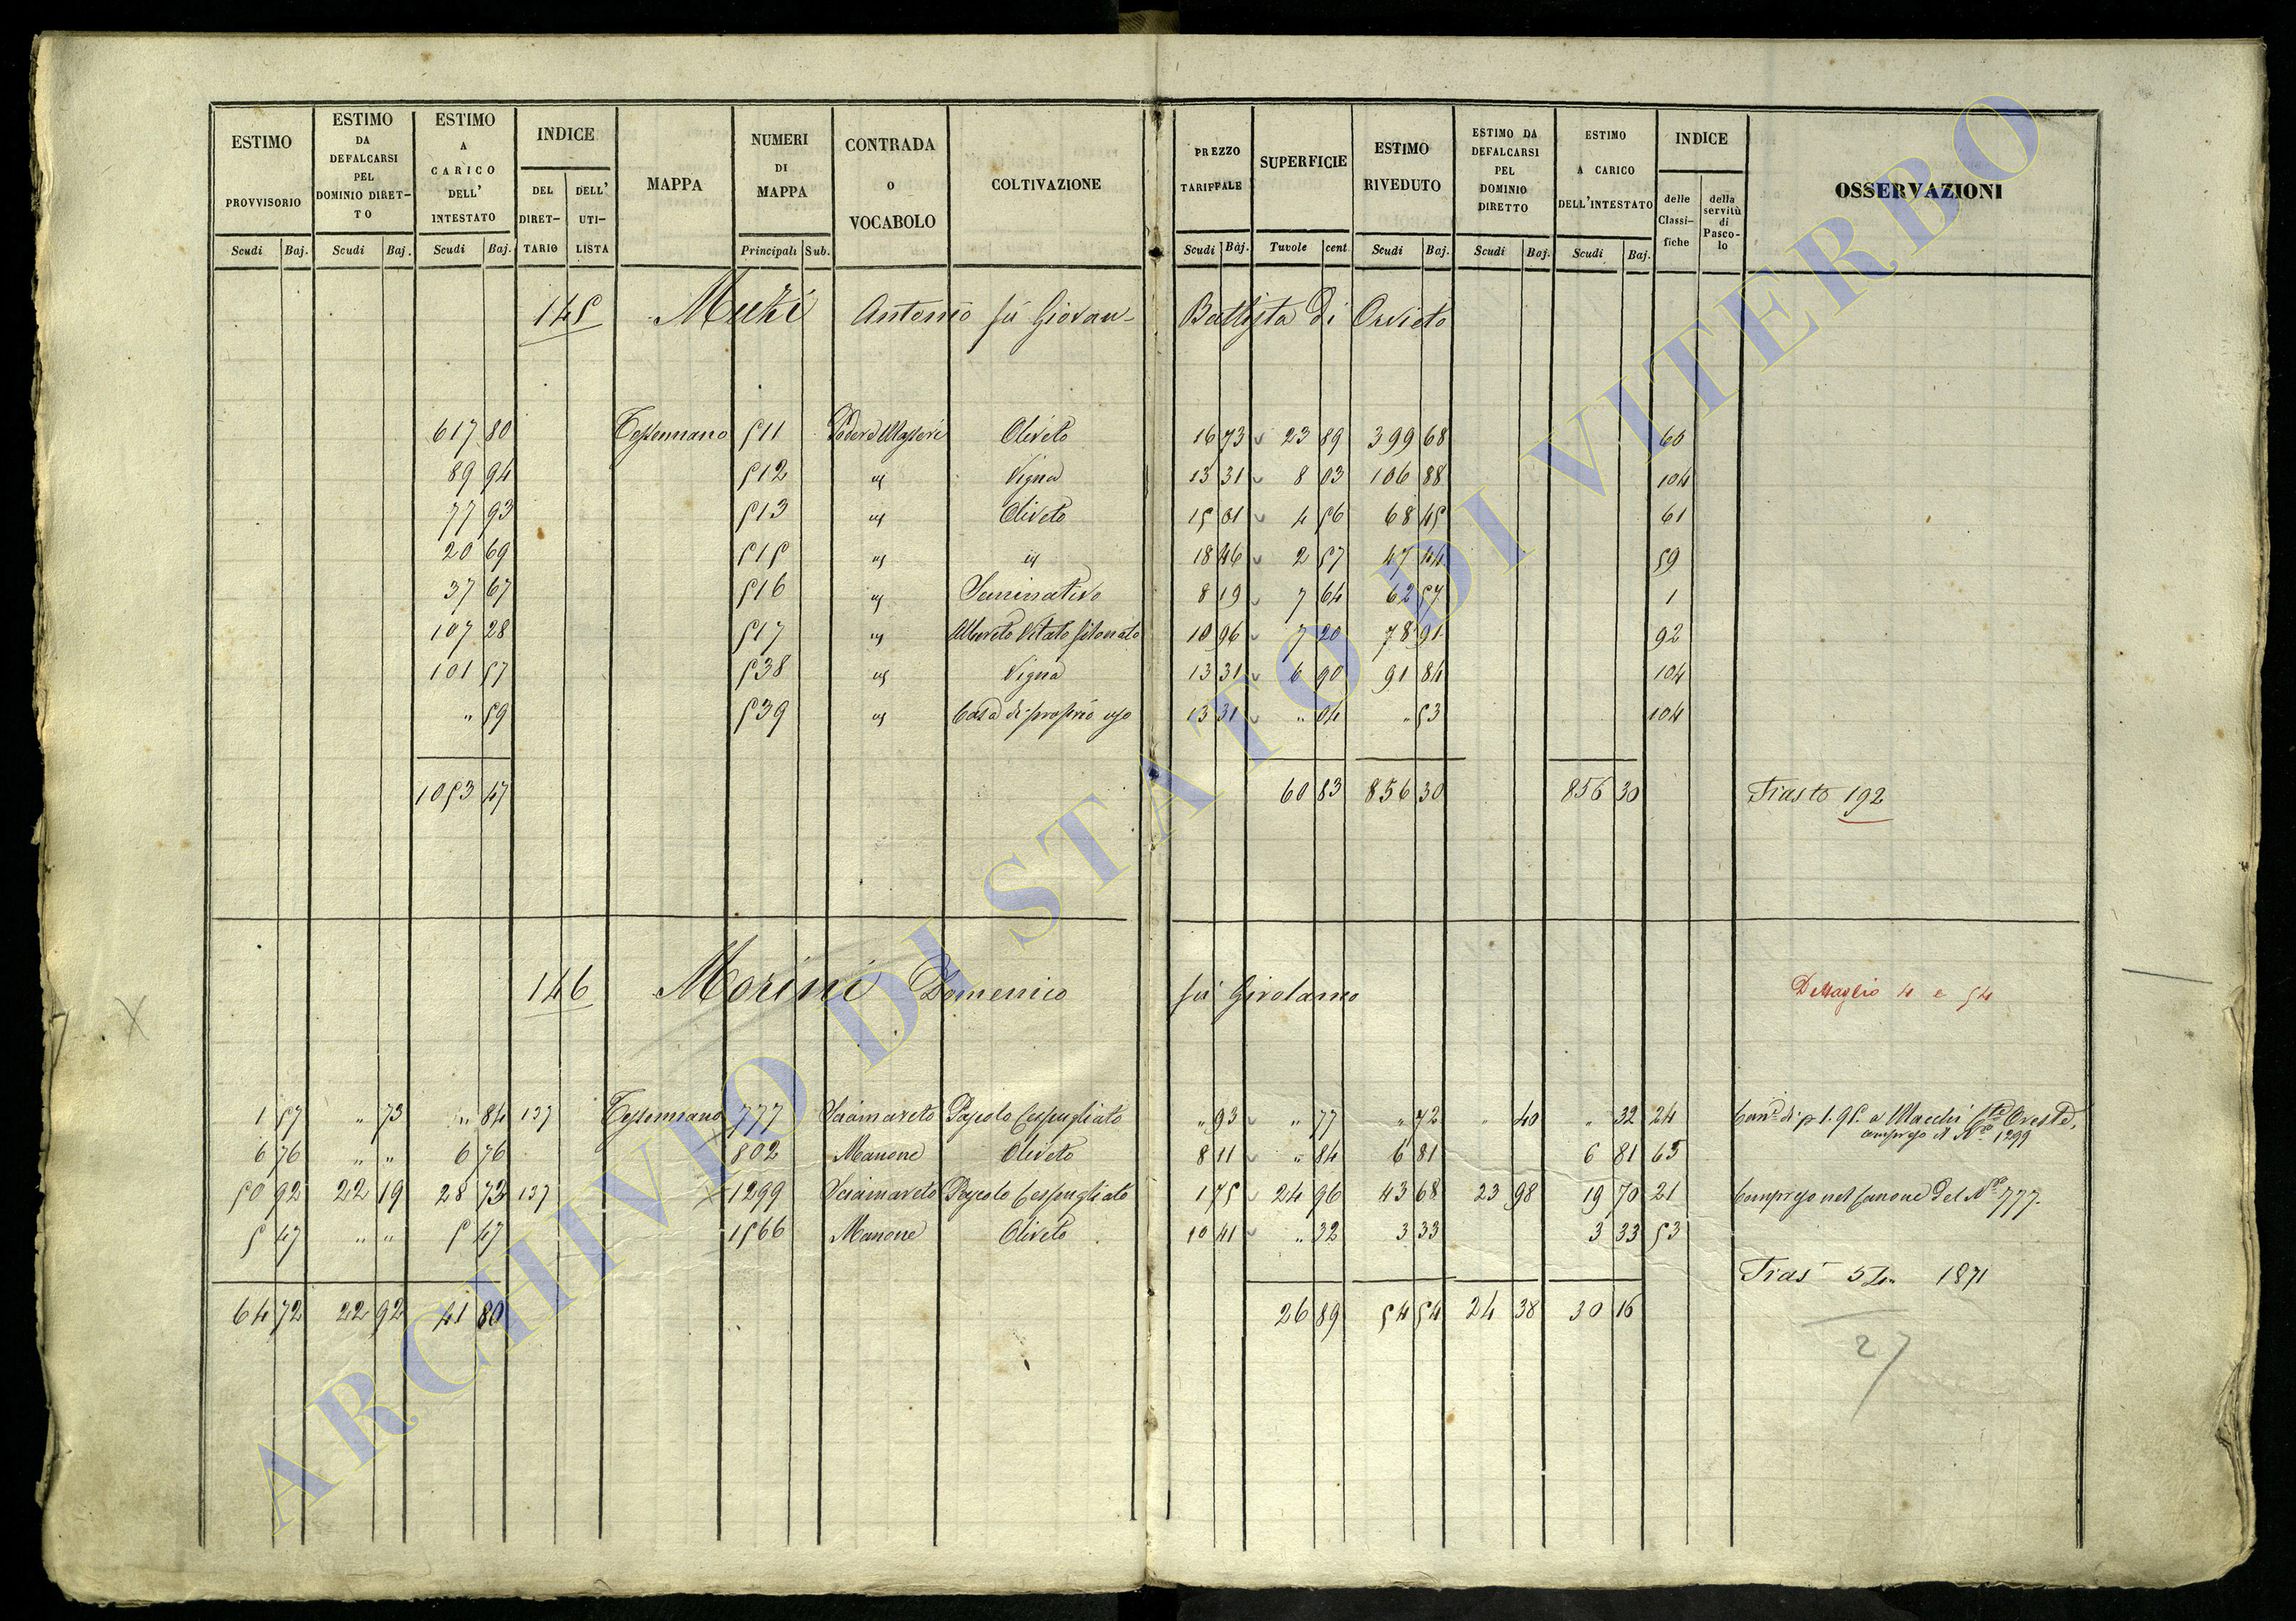 ESTIMO PROVVISORIO Scudi Baj. ESTIMO DA DEFALCARSI PEL DOMINIO DIRETTO Scudi Baj. ESTIMO A CARICO DELL' INTESTATO Scudi Baj. INDICE DEL DIRETTARIO DELL' UTILISTA MAPPA NUMERI DI MAPPA Principali Sub. CONTRADA O VOCABOLO COLTIVAZIONE PREZZO TARIFFALE Scudi Baj. SUPERFICIE Tavole cent. ESTIMO RIVEDUTO Scudi Baj. ESTIMO DA DEFALCARSI PEL DOMINIO DIRETTO Scudi Baj. ESTIMO A CARICO DELL'INTESTATO Scudi Baj. INDICE delle Classifiche della servitù di Pascolo OSSERVAZIONI
145 Muzi Antonio fù Giovan- Battista di Orvieto
617 80 Tessennano 511 Oliveto 16 73 23 89 399 68 60
89 94 512 " Vigna 13 31 8 03 106 88 104
77 93 513 " Oliveto 15 01 4 56 68 45 61
20 69 515 " " 18 46 2 57 47 44 59
37 67 516 " Seminativo 8 19 7 64 62 57 1
107 28 517 " Alboreto Vitato 10 96 7 20 78 91 92
101 57 538 " Vigna 13 31 6 90 91 84 104
" 59 539 " Casa di proprio uso 13 31 " 04 " 53 104
1053 47 60 83 856 30 856 30 Trasto 192
146 Morini Domenico fù Girolamo Dettaglio 4 e 54
1 57 " 73 " 84 137 Tessennano 777 Sciamareto Pascolo Cespugliato " 93 " 77 " 72 " 40 " 32 24 Can.e di p 1. 95. a Macchi Oreste,
compreso il N.o 1299
6 76 " " 6 76 802 Manone Oliveto 8 11 " 84 6 81 6 81 63
50 92 22 19 28 73 137 1299 Sciamareto Pascolo Cespugliato 1 75 24 96 43 68 23 98 19 70 21 Compreso nel Canone del N.o 777.
5 47 " " 5 47 1566 Manone Oliveto 10 41 " 32 3 33 3 33 53
Tras 1871
64 72 22 92 41 80 26 89 54 54 24 38 30 16
27
ARCHIVIO DI STATO DI VITERBO